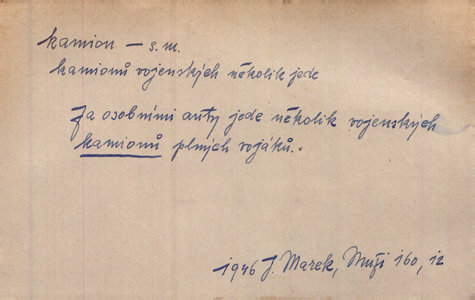 kamion – s. m.
kamionů vojenských několik jede
Za osobními auty jede několik vojenských
kamionů plných vojáků.
1946 J. Marek, Muži 160, 12